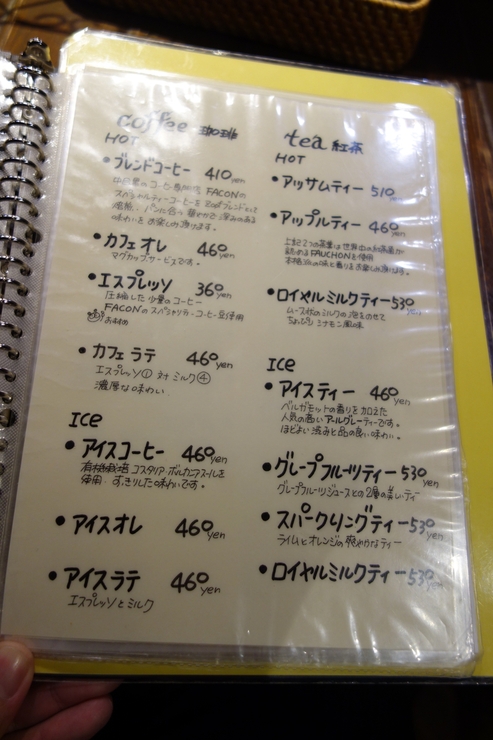 coffee 珈琲
HOT
・ブレンドコーヒー 410yen
FACONの
スペシャルティーコーヒーを
味わいをお楽しみ頂けます。
・カフェオレ 460yen
マグカップサービスです。
・エスプレッソ 360yen
圧縮した少量のコーヒー
FACONのスペシャルティーコーヒー豆使用
おすすめ
・カフェラテ 460yen
エスプレッソ① 対 ミルク④
濃厚な味わい
ICE
・アイスコーヒー 460yen
有機栽培 コスタリカ・ボルカンアスールを
使用 すっきりした味わいです。
・アイスオレ 460yen
・アイスラテ 460yen
エスプレッソとミルク
tea 紅茶
HOT
・アッサムティー 510yen
・アップルティー 460yen
上記2つの茶葉は世界中の紅茶通が
認めるFAUCHONを使用
本格派の味と香りをお楽しみ頂けます。
・ロイヤルミルクティー530yen
ムース状のミルクの泡をのせて
ちょぴりシナモン風味
ICE
・アイスティー 460yen
ベルガモットの香りを加えた
人気の高いアールグレーティーです。
ほどよい渋みと品の良い味わい。
・グレープフルーツティー530yen
グレープフルーツジュースとの2層の美しいティー
・スパークリングティー530yen
ライムとオレンジの爽やかなティー
・ロイヤルミルクティー530yen